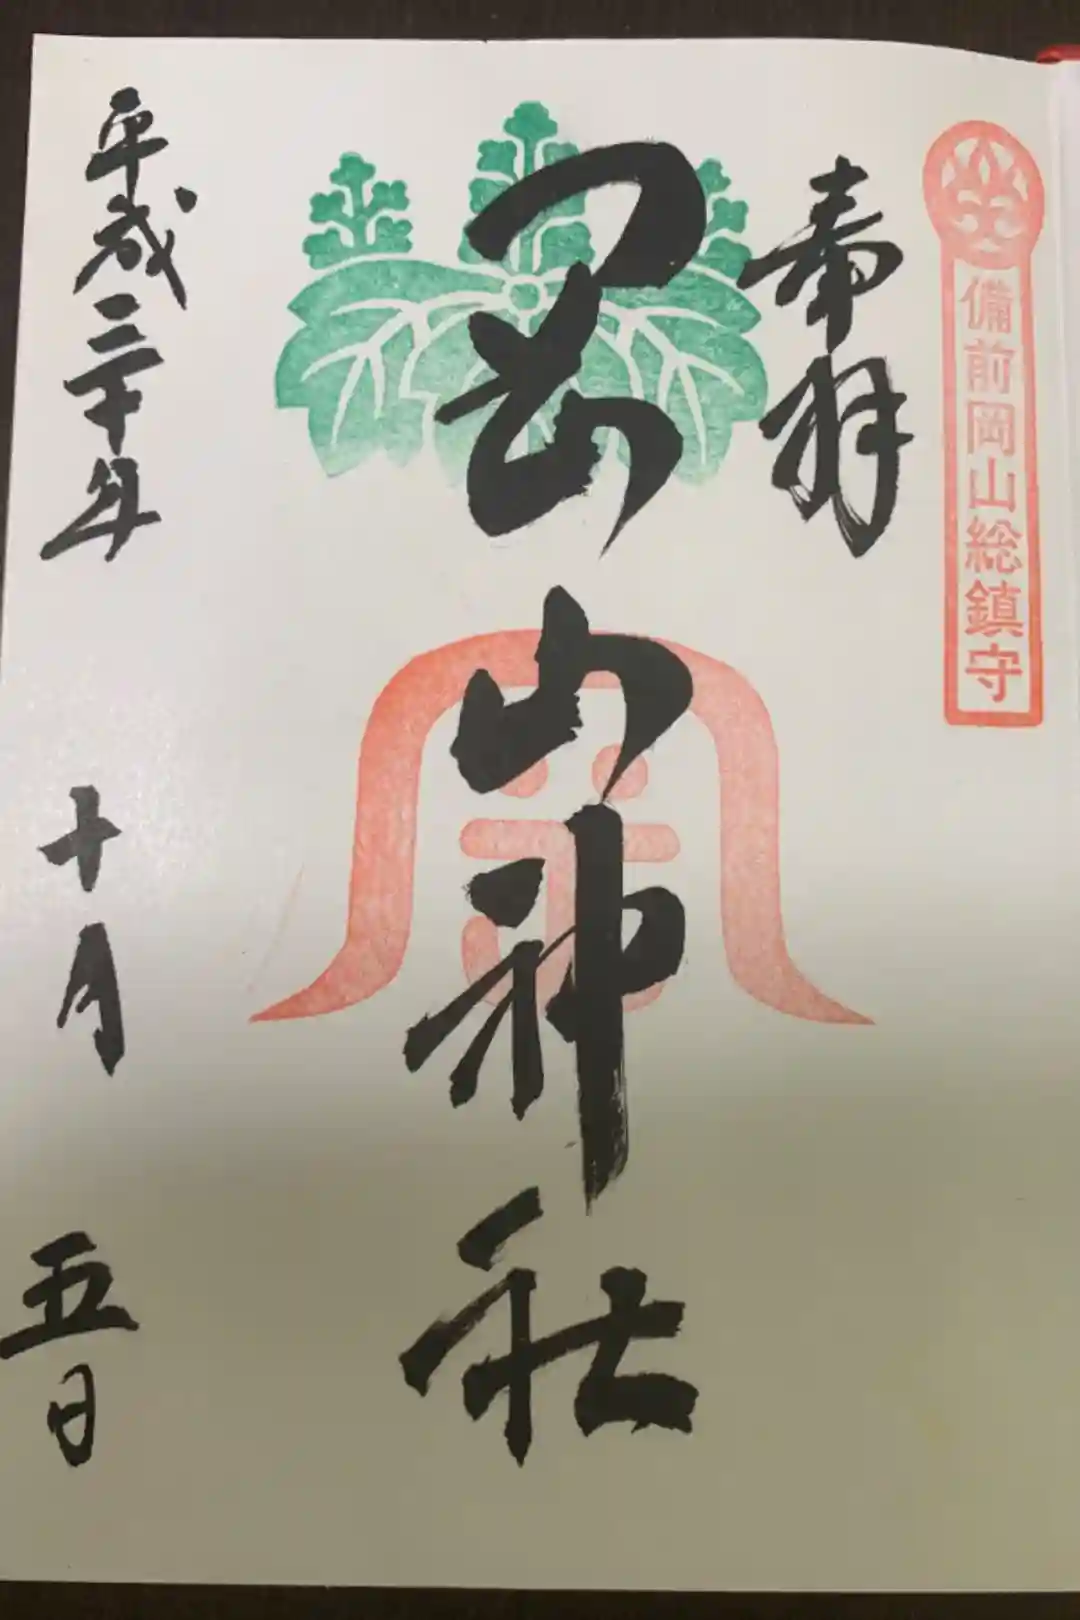 備前岡山総鎮守
奉拝
岡山神社
平成三十年
十月
五日